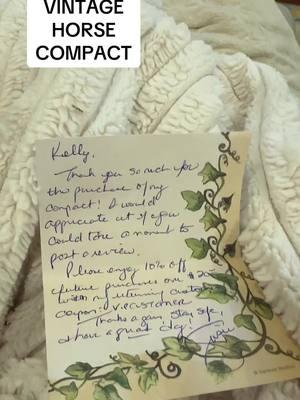 VINTAGE
HORSE
COMPACT
Kelly,
Thank you so much for
the purchase of my
compact! I would
appreciate it if you
could take a moment to
post a review.
Please enjoy 10% off
future purchases over $20
with my returning customer
coupon: VECUSTOMER
Thanks again, stay safe,
& have a great day!